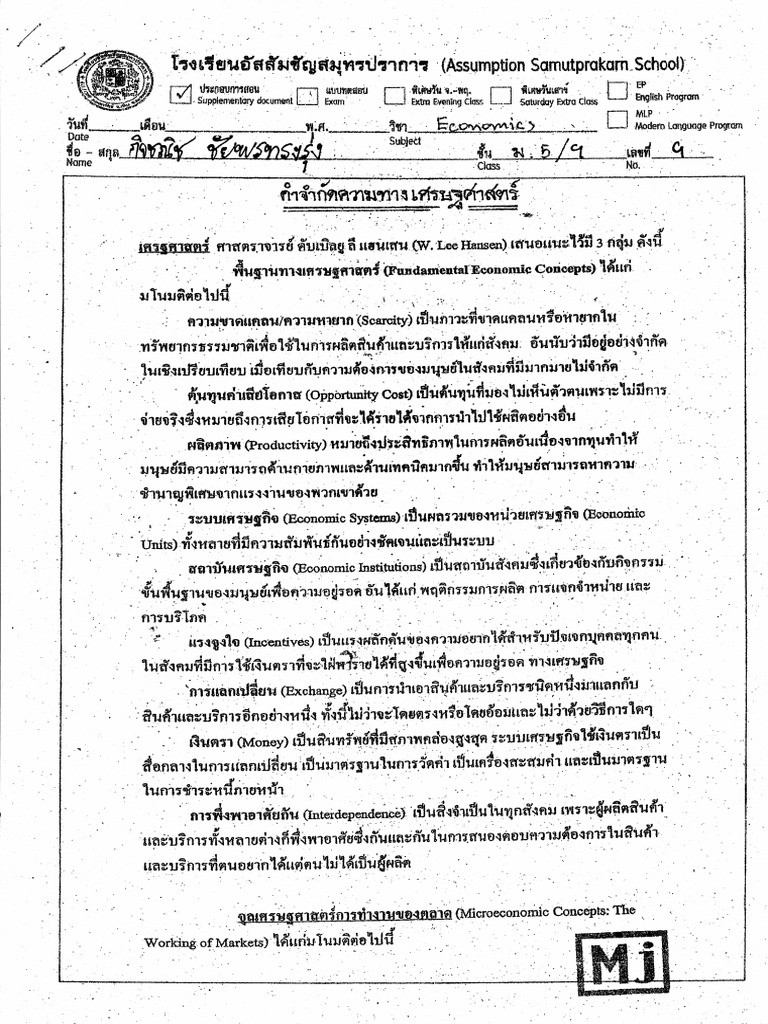 โรงเรียนอัสสัมชัญสมุทรปราการ (Assumption Samutprakarn School)
ประกอบการสอน แบบทดสอบ พิเศษวัน จ.-พฤ. พิเศษวันเสาร์ EP
Supplementary document Exam Extra Evening Class Saturday Extra Class English Program
MLP
วันที่ เดือน พ.ศ. วิชา Economics Modern Language Program
Date Subject
ชื่อ - สกุล กิจชณิช ชัยพรทรงรุ่ง ชั้น ม.5/9 เลขที่ 9
Name Class No.
คำจำกัดความทางเศรษฐศาสตร์
เศรฐศาสตร์ ศาสตราจารย์ ดับเบิลยู ลี แฮนเสน (W. Lee Hansen) เสนอแนะไว้มี 3 กลุ่ม ดังนี้
พื้นฐานทางเศรษฐศาสตร์ (Fundamental Economic Concepts) ได้แก่
มโนมติต่อไปนี้
ความขาดแคลน/ความหายาก (Scarcity) เป็นภาวะที่ขาดแคลนหรือหายากใน
ทรัพยากรธรรมชาติเพื่อใช้ในการผลิตสินค้าและบริการให้แก่สังคม อันนับว่ามีอยู่อย่างจำกัด
ในเชิงเปรียบเทียบ เมื่อเทียบกับความต้องการของมนุษย์ในสังคมที่มีมากมายไม่จำกัด
ต้นทุนค่าเสียโอกาส (Opportunity Cost) เป็นต้นทุนที่มองไม่เห็นตัวตนเพราะไม่มีการ
จ่ายจริงซึ่งหมายถึงการเสียโอกาสที่จะได้รายได้จากการนำไปใช้ผลิตอย่างอื่น
ผลิตภาพ (Productivity) หมายถึงประสิทธิภาพในการผลิตอันเนื่องจากทุนทำให้
มนุษย์มีความสามารถด้านกายภาพและด้านเทคนิคมากขึ้น ทำให้มนุษย์สามารถหาความ
ชำนาญพิเศษจากแรงงานของพวกเขาด้วย
ระบบเศรษฐกิจ (Economic Systems) เป็นผลรวมของหน่วยเศรษฐกิจ (Economic
Units) ทั้งหลายที่มีความสัมพันธ์กันอย่างชัดเจนและเป็นระบบ
สถาบันเศรษฐกิจ (Economic Institutions) เป็นสถาบันสังคมซึ่งเกี่ยวข้องกับกิจกรรม
ขั้นพื้นฐานของมนุษย์เพื่อความอยู่รอด อันได้แก่ พฤติกรรมการผลิต การแจกจำหน่าย และ
การบริโภค
แรงจูงใจ (Incentives) เป็นแรงผลักดันของความอยากได้สำหรับปัจเจกบุคคลทุกคน
ในสังคมที่มีการใช้เงินตราที่จะใฝ่หารายได้ที่สูงขึ้นเพื่อความอยู่รอด ทางเศรษฐกิจ
การแลกเปลี่ยน (Exchange) เป็นการนำเอาสินค้าและบริการชนิดหนึ่งมาแลกกับ
สินค้าและบริการอีกอย่างหนึ่ง ทั้งนี้ไม่ว่าจะโดยตรงหรือโดยอ้อมและไม่ว่าด้วยวิธีการใดๆ
เงินตรา (Money) เป็นสินทรัพย์ที่มีสภาพคล่องสูงสุด ระบบเศรษฐกิจใช้เงินตราเป็น
สื่อกลางในการแลกเปลี่ยน เป็นมาตรฐานในการวัดค่า เป็นเครื่องสะสมค่า และเป็นมาตรฐาน
ในการชำระหนี้ภายหน้า
การพึ่งพาอาศัยกัน (Interdependence) เป็นสิ่งจำเป็นในทุกสังคม เพราะผู้ผลิตสินค้า
และบริการทั้งหลายต่างก็พึ่งพาอาศัยซึ่งกันและกันในการสนองตอบความต้องการในสินค้า
และบริการที่ตนอยากได้แต่ตนไม่ได้เป็นผู้ผลิต
จุลเศรษฐศาสตร์การทำงานของตลาด (Microeconomic Concepts: The
Working of Markets) ได้แก่มโนมติต่อไปนี้
Mj